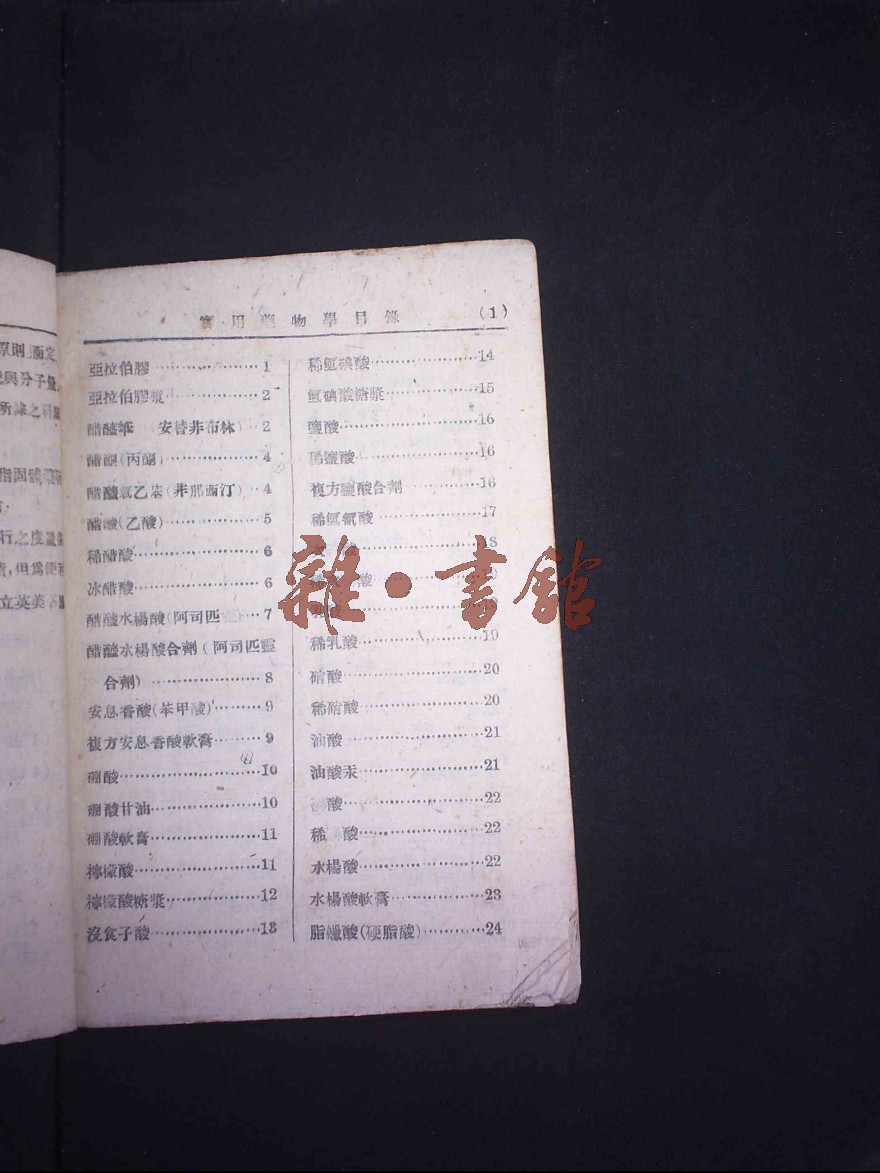 原則」而定
與分子量
行之度量
立英美
實用藥物學目錄 (1)
亞拉伯膠…………………1
亞拉伯膠漿………………2
醋醯苯 安替非布林)…2
醋酮(丙酮)………………4
醋醯氧乙苯(非那西汀)…4
醋酸(乙酸)………………5
稀醋酸……………………6
冰醋酸……………………6
醋醯水楊酸(阿司匹 …7
醋醯水楊酸合劑(阿司匹靈
合劑)……………………8
安息香酸(苯甲酸)………9
複方安息香酸軟膏………9
硼酸………………………10
硼酸甘油…………………10
硼酸軟膏…………………11
檸檬酸……………………11
檸檬酸糖漿………………12
沒食子酸…………………13
稀氫碘酸…………………14
氫碘酸糖漿………………15
鹽酸………………………16
稀鹽酸……………………16
複方鹽酸合劑……………16
稀氫氰酸…………………17
酸………………………18
酸………………………19
19
稀乳酸……………………19
硝酸………………………20
稀硝酸……………………20
油酸………………………21
油酸汞……………………21
酸………………………22
稀 酸……………………22
水楊酸……………………22
水楊酸軟膏………………23
脂蠟酸(硬脂酸)…………24
雜·書館